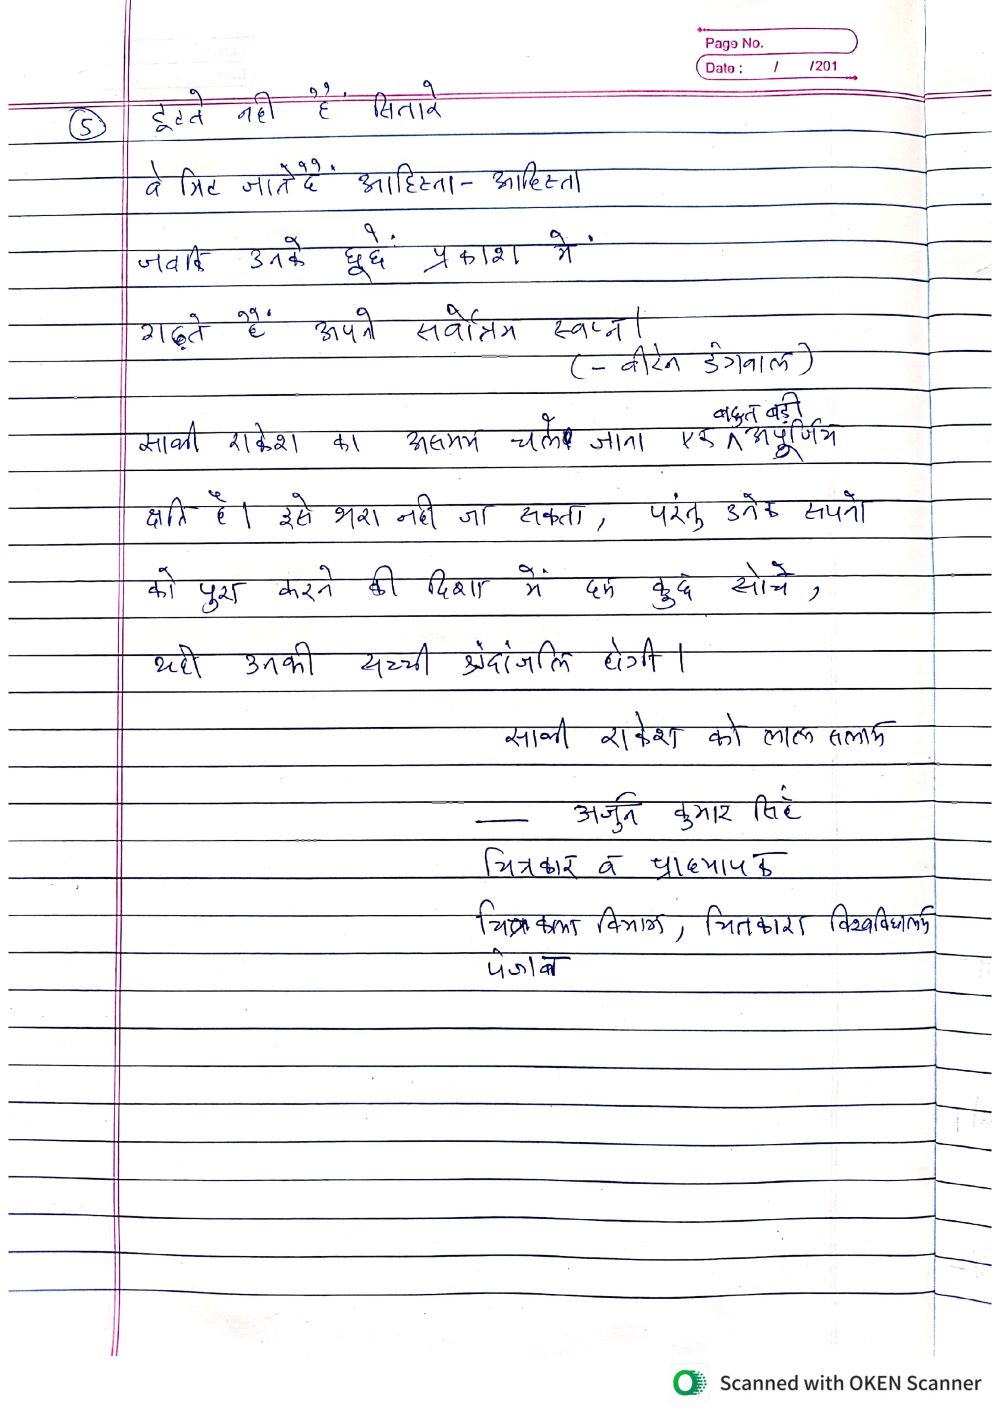 Page No.
Date : / /201
⑤ टूटते नही हैं सितारे
वे मिट जाते हैं आहिस्ता - आहिस्ता
जबकि उनके छूछें प्रकाश में
गढ़ते हैं अपने सर्वोत्तम स्वप्न।
(- वीरेन डंगवाल)
बहुत बड़ी
साथी राकेश का असमय चले जाना एक ^ अपूर्णिय
क्षति है। इसे भरा नही जा सकता, परंतु उनके सपनो
को पुरा करने की दिशा में हम कुछ सोचे,
यही उनकी सच्ची श्रंदांजलि होगी।
साथी राकेश को लाल सलाम
— अर्जुन कुमार सिंह
चित्रकार व प्राध्यापक
चित्रकला विभाग, चितकारा विश्वविद्यालय
पंजाब
Scanned with OKEN Scanner